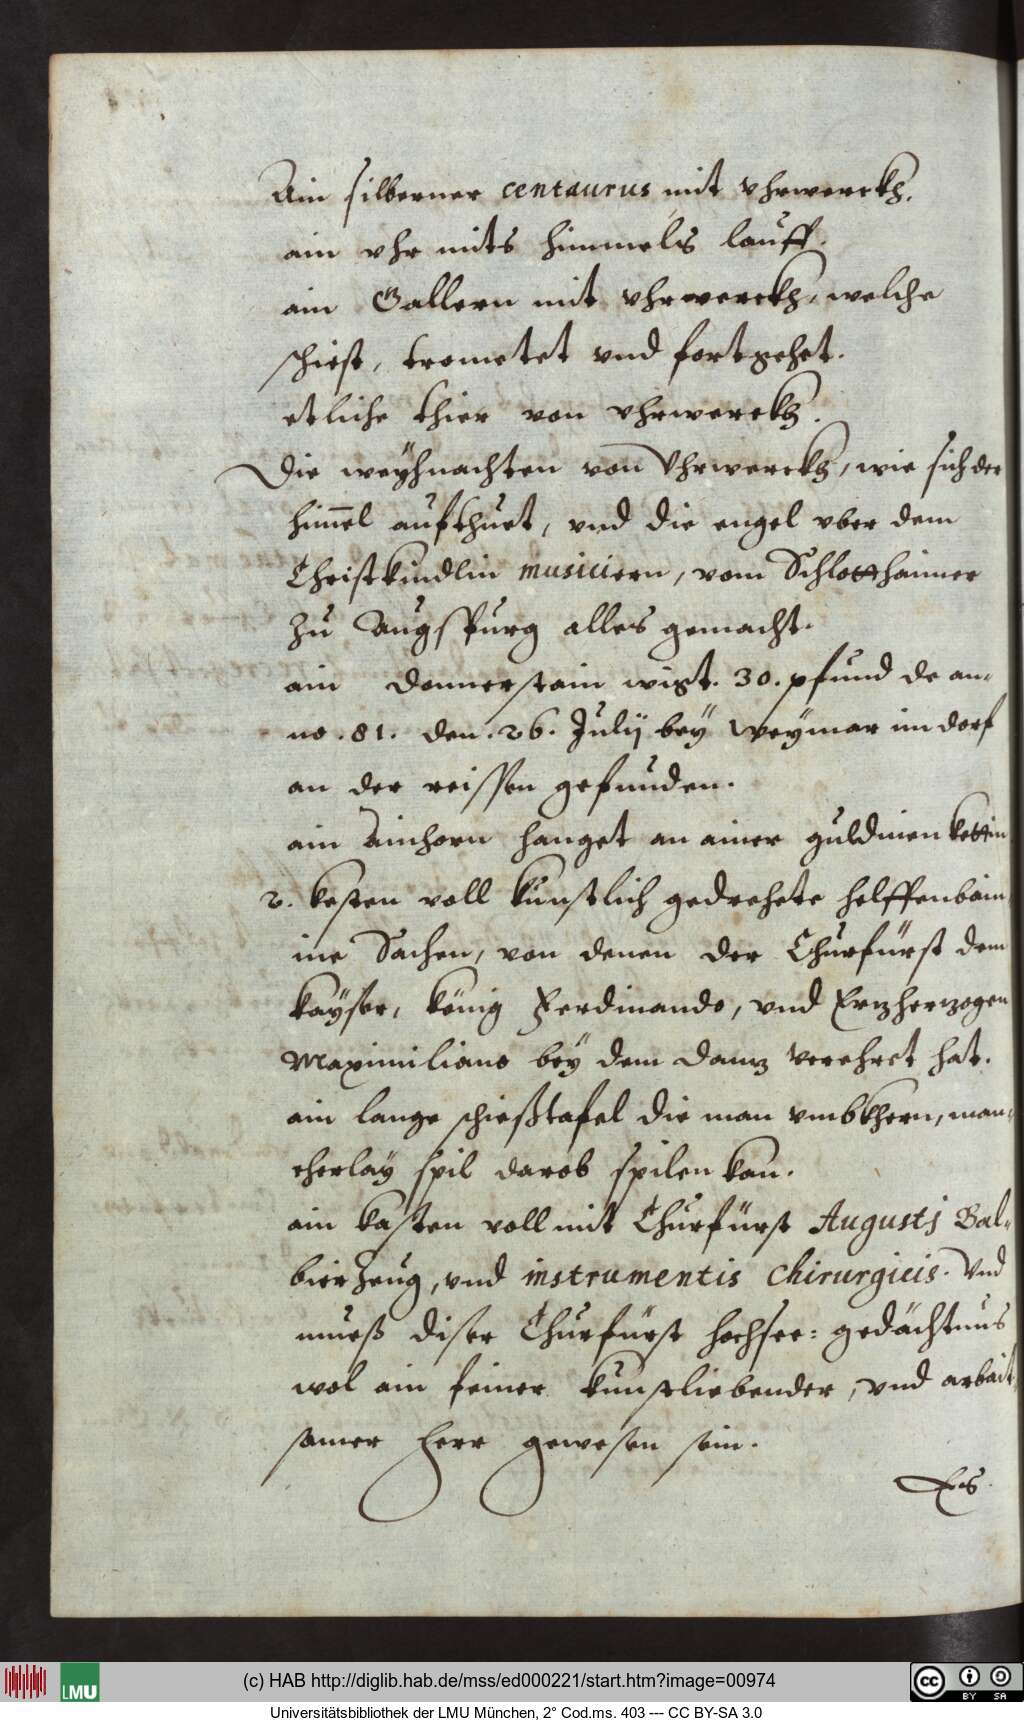 Ain silberner centaurus mit vhrwerckh.
ain vhr mits himmels lauff.
ain Gallern mit vhrwerckh, welche
schiest, trometet vnd fortgehet.
etliche thier von vhrwerckh.
Die weyhnachten von Vhrwerckh, wie sich der
himel aufthuet, vnd die engel vber dem
Christkindlin musiciern, vom Schlotthaimer
zu Augspurg alles gemacht.
ain donnerstain wigt. 30. pfund de an-
no .81. den .26. Julij bey Weymar im dorf
an der reissen gefunden.
ain Ainhorn hanget an ainer guldinen kettin
2. kesten voll kunstlich gedrehete helffenbain
ine Sachen, von denen der Churfürst dem
kayser, könig Ferdinando, vnd Erzherzogen
Maximiliano bey dem danz verehret hat.
ain lange schießtafel die man vmbkhern, man-
cherlay spil darob spilen kan.
ain kasten voll mit Churfürst Augustj Bal-
bierzeug, vnd instrumentis chirurgicis. Vnd
mueß diser Churfürst hochsee: gedächtnus
wol ain feiner kunstliebender, vnd arbait
samer herr gewesen sein.
Es
(c) HAB http://diglib.hab.de/mss/ed000221/start.htm?image=00974
Universitätsbibliothek der LMU München, 2° Cod.ms. 403 --- CC BY-SA 3.0
LMU
cc BY SA